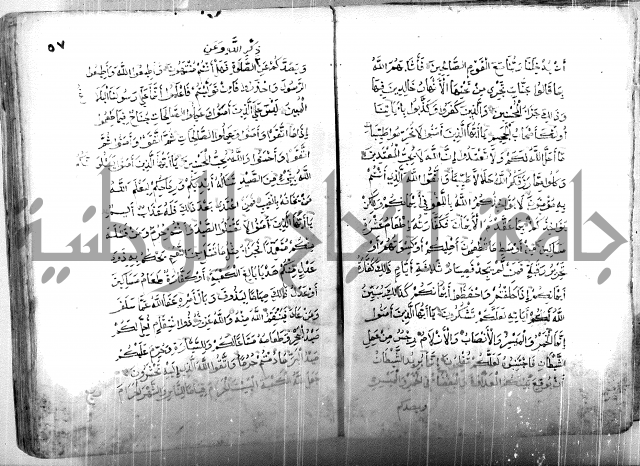 أن يدخلنا ربنا مع القوم الصالحين فأثابهم الله
بما قالوا جنات تجري من تحتها الأنهار خالدين فيها
وذلك جزاء المحسنين والذين كفروا وكذبوا بآياتنا
أولئك أصحاب الجحيم يا أيها الذين آمنوا لا تحرموا طيبات
ما أحل الله لكم ولا تعتدوا إن الله لا يحب المعتدين
وكلوا مما رزقكم الله حلالا طيبا واتقوا الله الذي أنتم
به مؤمنون لا يؤاخذكم الله باللغو في أيمانكم ولكن
يؤاخذكم بما عقدتم الأيمان فكفارته إطعام عشرة
مساكين من أوسط ما تطعمون أهليكم أو كسوتهم أو
تحرير رقبة فمن لم يجد فصيام ثلاثة أيام ذلك كفارة
أيمانكم إذا حلفتم واحفظوا أيمانكم كذلك يبين
الله لكم آياته لعلكم تشكرون يا أيها الذين آمنوا
إنما الخمر والميسر والأنصاب والأزلام رجس من عمل
الشيطان فاجتنبوه لعلكم تفلحون إنما يريد الشيطان
أن يوقع بينكم العداوة والبغضاء في الخمر والميسر
ويصدكم
٥٧
ذكر الله وعن
ويصدكم عن الصلوة فهل أنتم منتهون وأطيعوا الله وأطيعوا
الرسول واحذروا فإن توليتم فاعلموا أنما على رسولنا البلاغ
المبين ليس على الذين آمنوا وعملوا الصالحات جناح فيما طعموا
إذا ما اتقوا وآمنوا وعملوا الصالحات ثم اتقوا وآمنوا ثم
اتقوا وأحسنوا والله يحب المحسنين يا أيها الذين آمنوا ليبلونكم
الله بشيء من الصيد تناله أيديكم ورماحكم ليعلم الله
من يخافه بالغيب فمن اعتدى بعد ذلك فله عذاب أليم
يا أيها الذين آمنوا لا تقتلوا الصيد وأنتم حرم ومن قتله
منكم متعمدا فجزاء مثل ما قتل من النعم يحكم به ذوا
عدل منكم هديا بالغ الكعبة أو كفارة طعام مساكين
أو عدل ذلك صياما ليذوق وبال أمره عفا الله عما سلف
ومن عاد فينتقم الله منه والله عزيز ذو انتقام أحل لكم
صيد البحر وطعامه متاعا لكم وللسيارة وحرم عليكم
صيد البر ما دمتم حرما واتقوا الله الذي إليه تحشرون
جعل الله الكعبة البيت الحرام قياما للناس والشهر الحرام
جامعة النجاح الوطنية